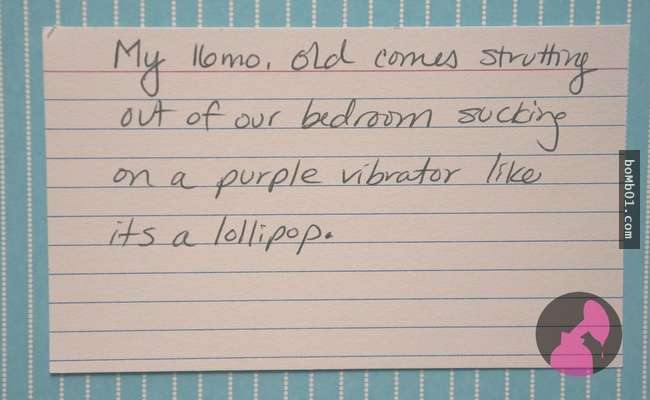 My 16mo. old comes strutting
out of our bedroom sucking
on a purple vibrator like
its a lollipop.
boMb01.com